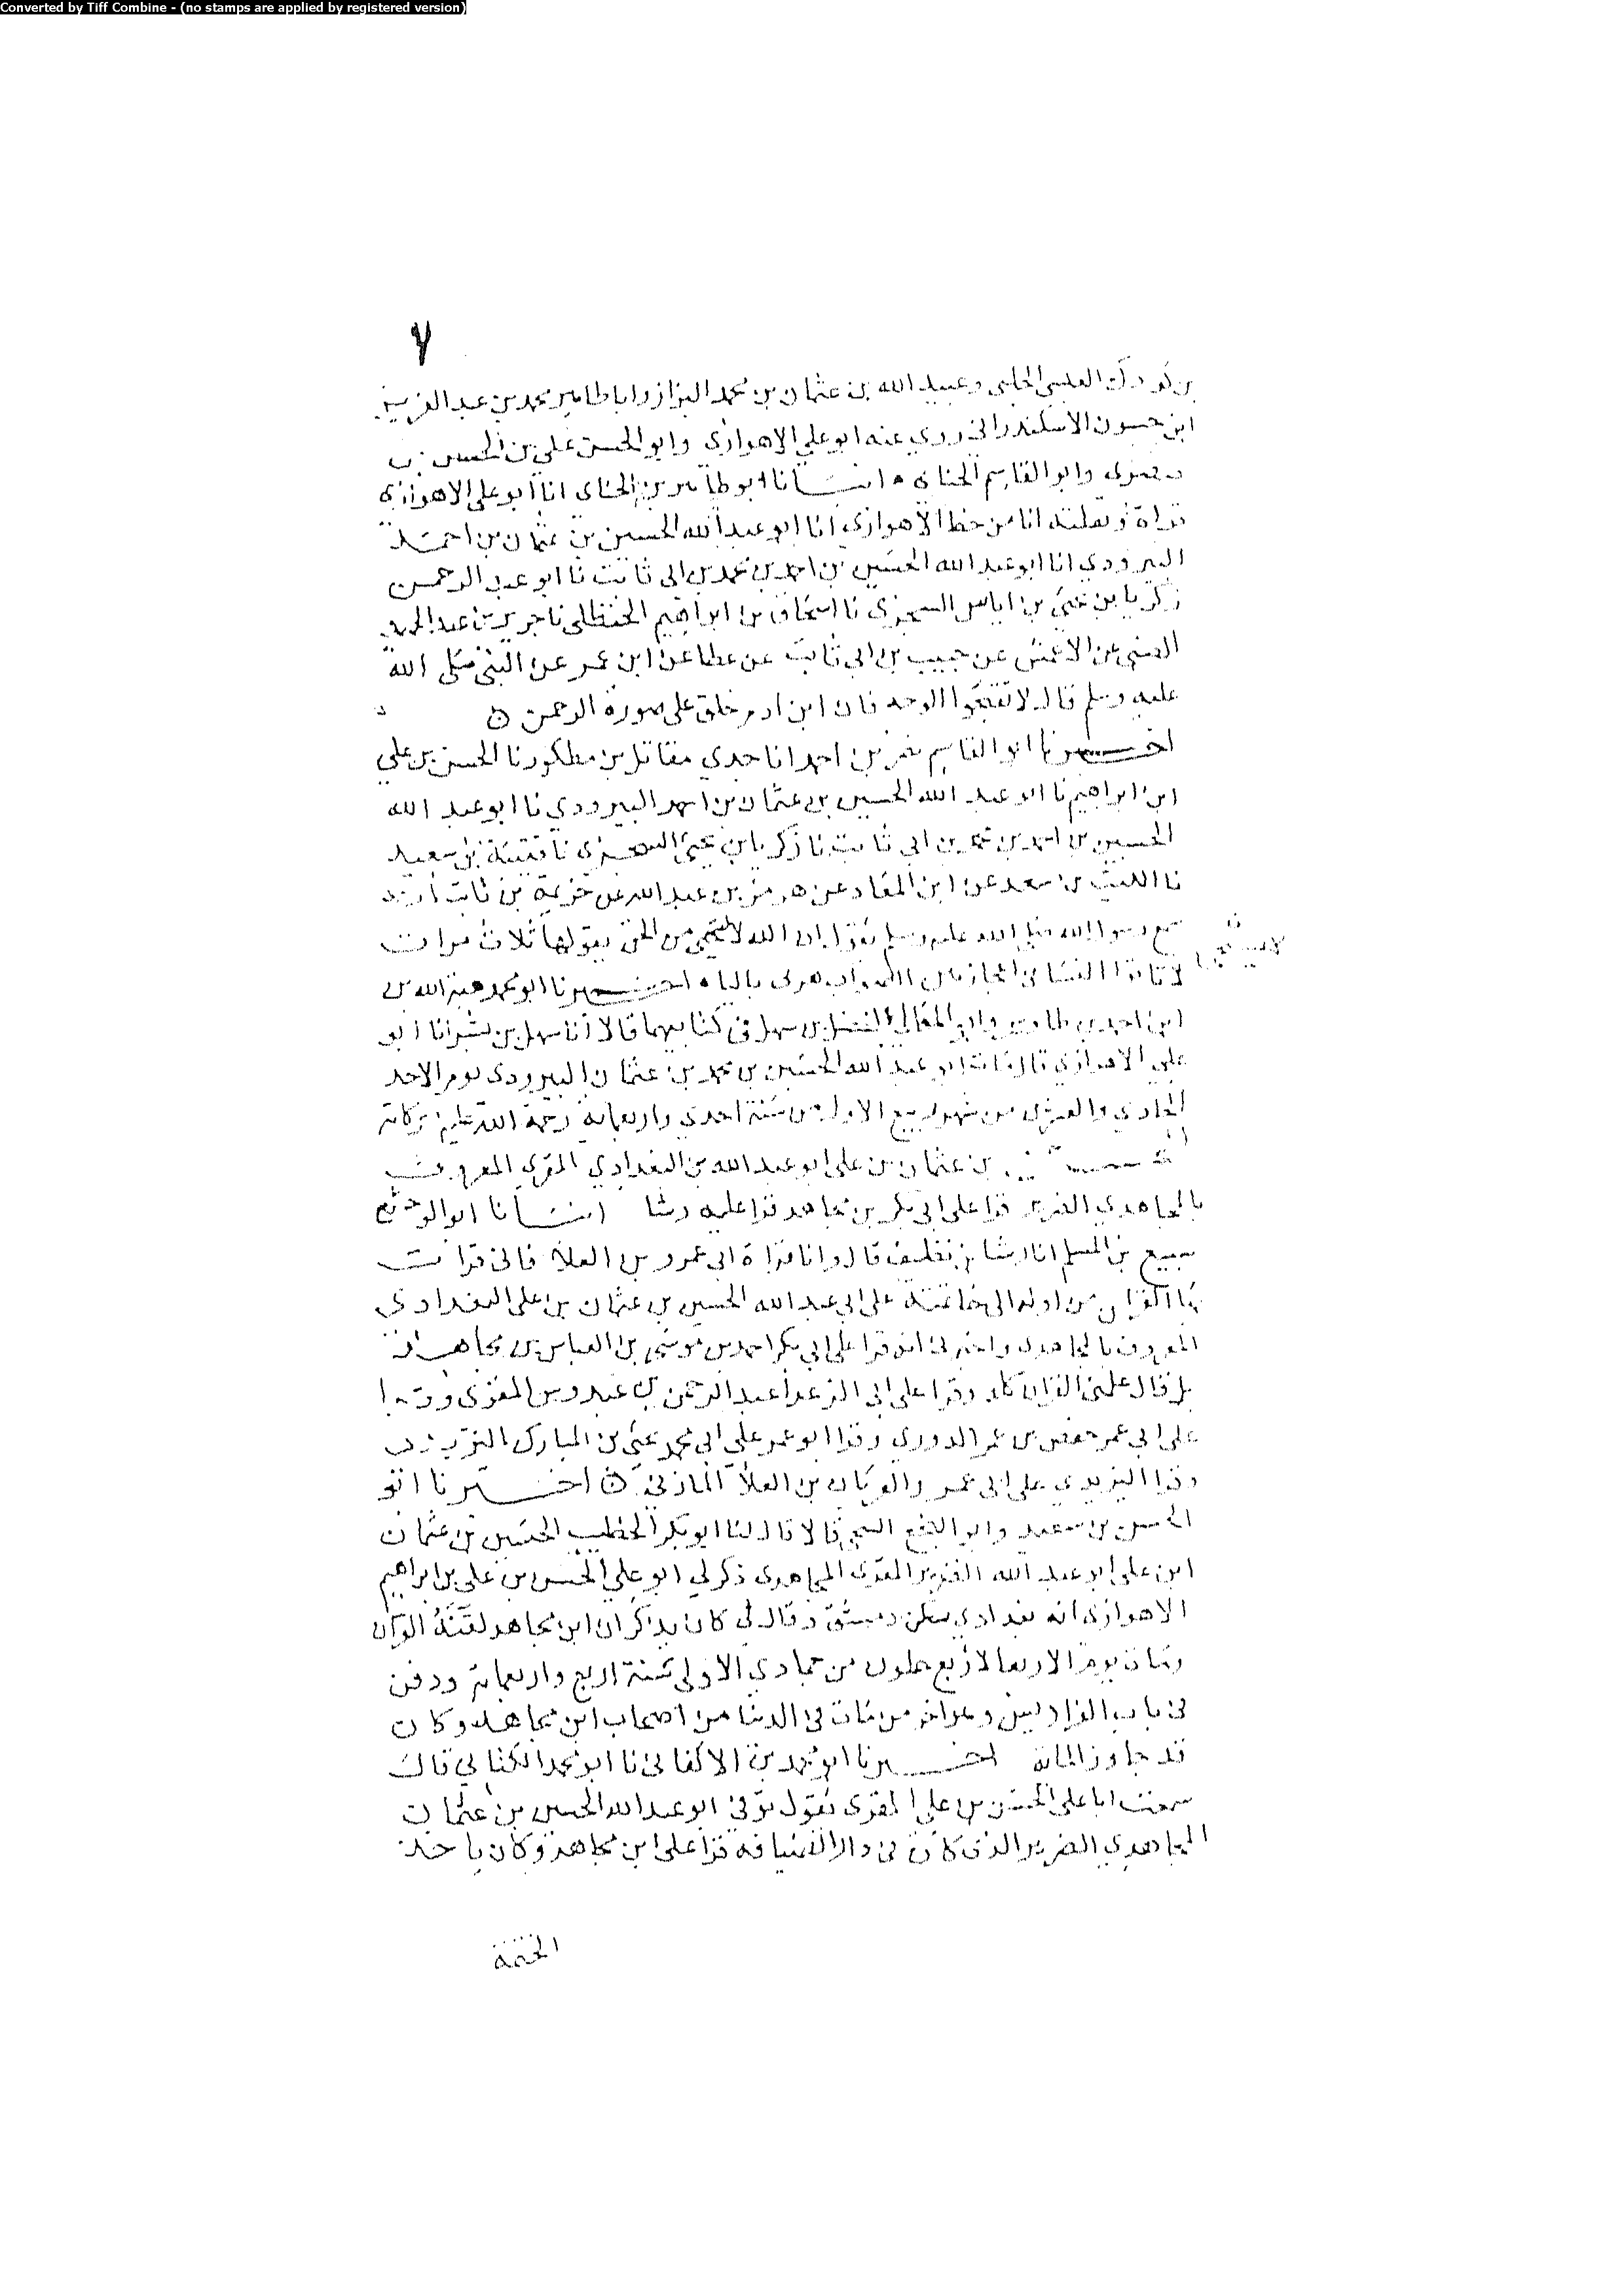 Converted by Tiff Combine - (no stamps are applied by registered version)
٧
بن العبسي الحلبي وعبيد الله بن عثمان بن محمد البزاز وابا طاهر محمد بن عبد العزيز
ابن حسون الاسكندراني روى عنه ابو علي الاهوازي وابو الحسن علي بن الحسين بن
وابو القاسم الحنائي انبانا ابو طاهر بن الحنائي انا ابو علي الاهوازي
قراة ونقلته انا من خط الاهوازي انا ابو عبد الله الحسين بن عثمان بن احمد
اليبرودي انا ابو عبد الله الحسين بن احمد بن محمد بن ابي ثابت نا ابو عبد الرحمن
زكريا بن يحيى بن اياس السجزي نا اسحاق بن ابراهيم الحنظلي نا جرير بن عبد الحميد
الضبي عن الاعمش عن حبيب بن ابي ثابت عن عطا عن ابن عمر عن النبي صلى الله
عليه وسلم قال لا تقبحوا الوجه فان ابن ادم خلق على صورة الرحمن
اخبرنا ابو القاسم نصر بن احمد انا جدي مقاتل بن مطكود نا الحسن بن علي
ابن ابراهيم نا ابو عبد الله الحسين بن عثمان بن احمد اليبرودي نا ابو عبد الله
الحسين بن احمد بن محمد بن ابي ثابت نا زكريا بن يحيى السجزي نا قتيبة بن سعيد
نا الليث بن سعد عن ابن الهاد عن هرمز بن عبد الله عن خزيمة بن ثابت انه
سمع رسول الله صلى الله عليه وسلم يقول ان الله لا يستحي من الحق يقولها ثلاث مرات
لا تاتوا النسا في اعجازهن بالبا اخبرنا ابو محمد هبة الله بن
ابن احمد بن طاوس وابو المعالي الفضل بن سهل في كتابيهما قالا انا سهل بن بشر انا ابو
علي الاهوازي قال مات ابو عبد الله الحسين بن محمد بن عثمان اليبرودي يوم الاحد
الحادي والعشرين من شهر ربيع الاول من سنة احدى واربعماية رحمة الله عليه وبركاته
بن عثمان بن علي ابو عبد الله بن البغدادي المقري المعروف
بالمجاهدي الضرير قرا على ابي بكر بن مجاهد قرا عليه رشا انبانا ابو الوحش
سبيع بن المسلم انا رشا بن نظيف قال وانا قراة ابي عمرو بن العلا فاني قرات
بها القران من اوله الى خاتمته على ابي عبد الله الحسين بن عثمان بن علي البغدادي
المعروف بالمجاهدي واخبرني انه قرا على ابي بكر احمد بن موسى بن العباس بن مجاهد
بل قال علمني القران كله وقرا على ابي الزعرا عبد الرحمن بن عبدوس المقري وقرا
على ابي عمر حفص بن عمر الدوري وقرا ابو عمر على ابي محمد يحيى بن المبارك اليزيدي
وقرا اليزيدي على ابي عمرو والعريان بن العلا المازني اخبرنا ابو
الحسن بن سعيد وابو النجم الشيحي قالا قال لنا ابو بكر الخطيب الحسين بن عثمان
ابن علي ابو عبد الله الضرير المقري المجاهدي ذكر لي ابو علي الحسن بن علي بن ابراهيم
الاهوازي انه بغدادي سكن دمشق وقال لي كان يذكر ان ابن مجاهد لقنه القران
ومات يوم الاربعا لاربع خلون من جمادى الاولى سنة اربع واربعماية ودفن
في باب الفراديس وهو اخر من مات في الدنيا من اصحاب ابن مجاهد وكان
قد جاوز الماية اخبرنا ابو محمد بن الاكفاني نا ابو محمد الكتاني قال
سمعت ابا علي الحسن بن علي المقري يقول توفي ابو عبد الله الحسين بن عثمان
المجاهدي الضرير الذي كان في دار الضيافة قرا على ابن مجاهد وكان ياخذ
الختمة